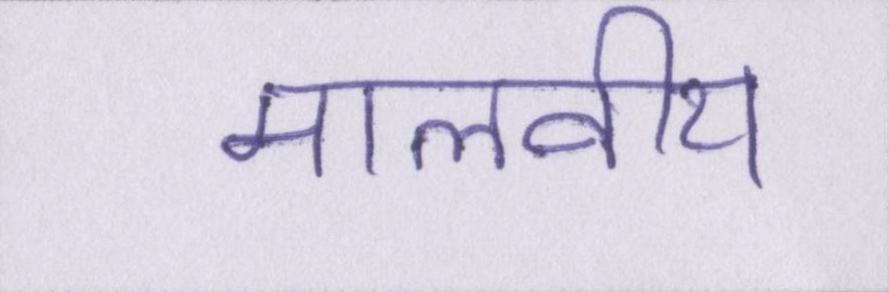 मालवीय